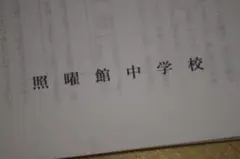 照曜館中学校